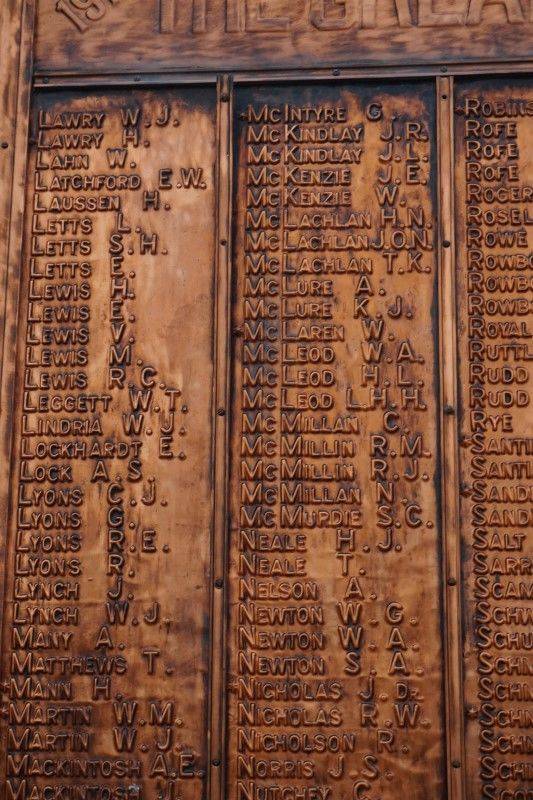 19
THE GREA
LAWRY W.J.
LAWRY H.
LAHN W.
LATCHFORD E.W.
LAUSSEN H.
LETTS L.
LETTS S.H.
LETTS E.
LEWIS H.
LEWIS E.
LEWIS V.
LEWIS M.
LEWIS R.C.
LEGGETT W.T.
LINDRIA W.J.
LOCKHARDT E.
LOCK A.S
LYONS C.J.
LYONS G.
LYONS R.E.
LYONS R.
LYNCH J.
LYNCH W.J.
MANY A.
MATTHEWS T.
MANN H.
MARTIN W.M.
MARTIN W.J.
MACKINTOSH A.E.
MACKINTOSH
MCINTYRE G.
MCKINDLAY J.R.
MCKINDLAY J.L.
MCKENZIE J.E.
MCKENZIE W.
MCLACHLAN H.N.
MCLACHLAN J.O.N.
MCLACHLAN T.K.
MCLURE A.
MCLURE K.J.
MCLAREN W.
MCLEOD W.A.
MCLEOD H.L.
MCLEOD L.H.H.
MCMILLAN C.
MCMILLIN R.M.
MCMILLIN R.J.
MCMILLAN N.
MCMURDIE S.C.
NEALE H.J.
NEALE T.
NELSON A.
NEWTON W.G.
NEWTON W.A.
NEWTON S.A.
NICHOLAS J.D.
NICHOLAS R.W.
NICHOLSON R.
NORRIS J.S.
NUTCHEY C.
ROBINS
ROFE
ROFE
ROFE
ROGER
ROSEL
ROWE
ROWBO
ROWBO
ROWBO
ROYAL
RUTTL
RUDD
RUDD
RYE
SANTI
SANTI
SAND
SANDV
SALT
SARR
SCAM
SCHW
SCHU
SCHI
SCHI
SCHN
SCHN
SCHN